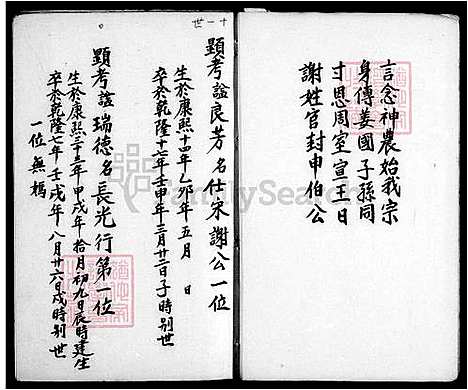 言念神農始我宗
身傳姜國子孫同
寸恩周室宣王日
謝姓官封申伯公
十一世
顕考諡良芳名仕宋謝公一位
生於康熙十四年乙卯年五月 日
卒於乾隆十七年壬申年三月廿二日子時别世
顕考諡瑞德名長光行第一位
生於康熙三十三年甲戌年拾月初九日辰時建生
卒於乾隆七年壬戌年八月廿六日戍時别世
一位無媽
FamilySearch